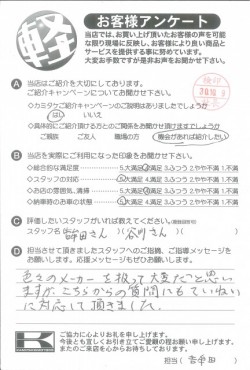 軽
お客様アンケート
当店では、お買い上げ頂いたお客様の声を可能
な限り現場に反映し、お客様により良い商品と
サービスを提供する事に努めています。
大変お手数ですが是非お声をお聞かせ下さい。
A 当店はご紹介を大切にしております。
ご紹介キャンペーンについてお聞かせ下さい。
◇カミタケご紹介キャンペーンのご説明はありましたでしょうか
はい いいえ
◇具体的にご紹介頂ける方とのご関係をお聞かせ頂けますでしょうか
ご親族 ご友人 職場の方 機会があれば紹介したい
B 当店を実際にご利用になった印象をお聞かせ下さい。
◇総合的な満足度 5.大満足 4.満足 3.ふつう 2.やや不満 1.不満
◇スタッフの対応 5.大満足 4.満足 3.ふつう 2.やや不満 1.不満
◇お店の雰囲気、清掃 5.大満足 4.満足 3.ふつう 2.やや不満 1.不満
◇納車時のお車の状態 5.大満足 4.満足 3.ふつう 2.やや不満 1.不満
C 評価したいスタッフがいれば教えてください。
スタッフ名( さん)( さん)
D 担当させて頂きましたスタッフへのご指摘、ご指導メッセージを
お願いします。応援メッセージもぜひお願いします。
色々のメーカーを扱って大変だと思い
ますが、こちらからの質問にもていねい
に対応して頂きました。
K
ご協力に心よりお礼を申し上げます。
今後とも宜しくお引き立てご愛顧の程お願い申し上げます。
またのご来店を心からお待ちしております。
担当( )